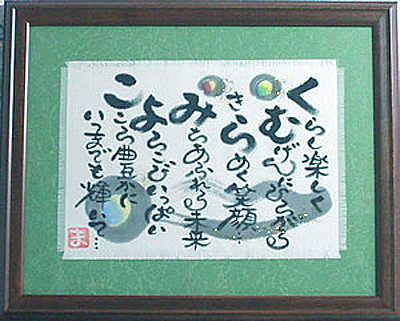 くらし楽しく
むげんに広がる
きらめく笑顔…
みちあふれる未来
よろこびいっぱい
こころ豊かに
いつまでも輝いて…